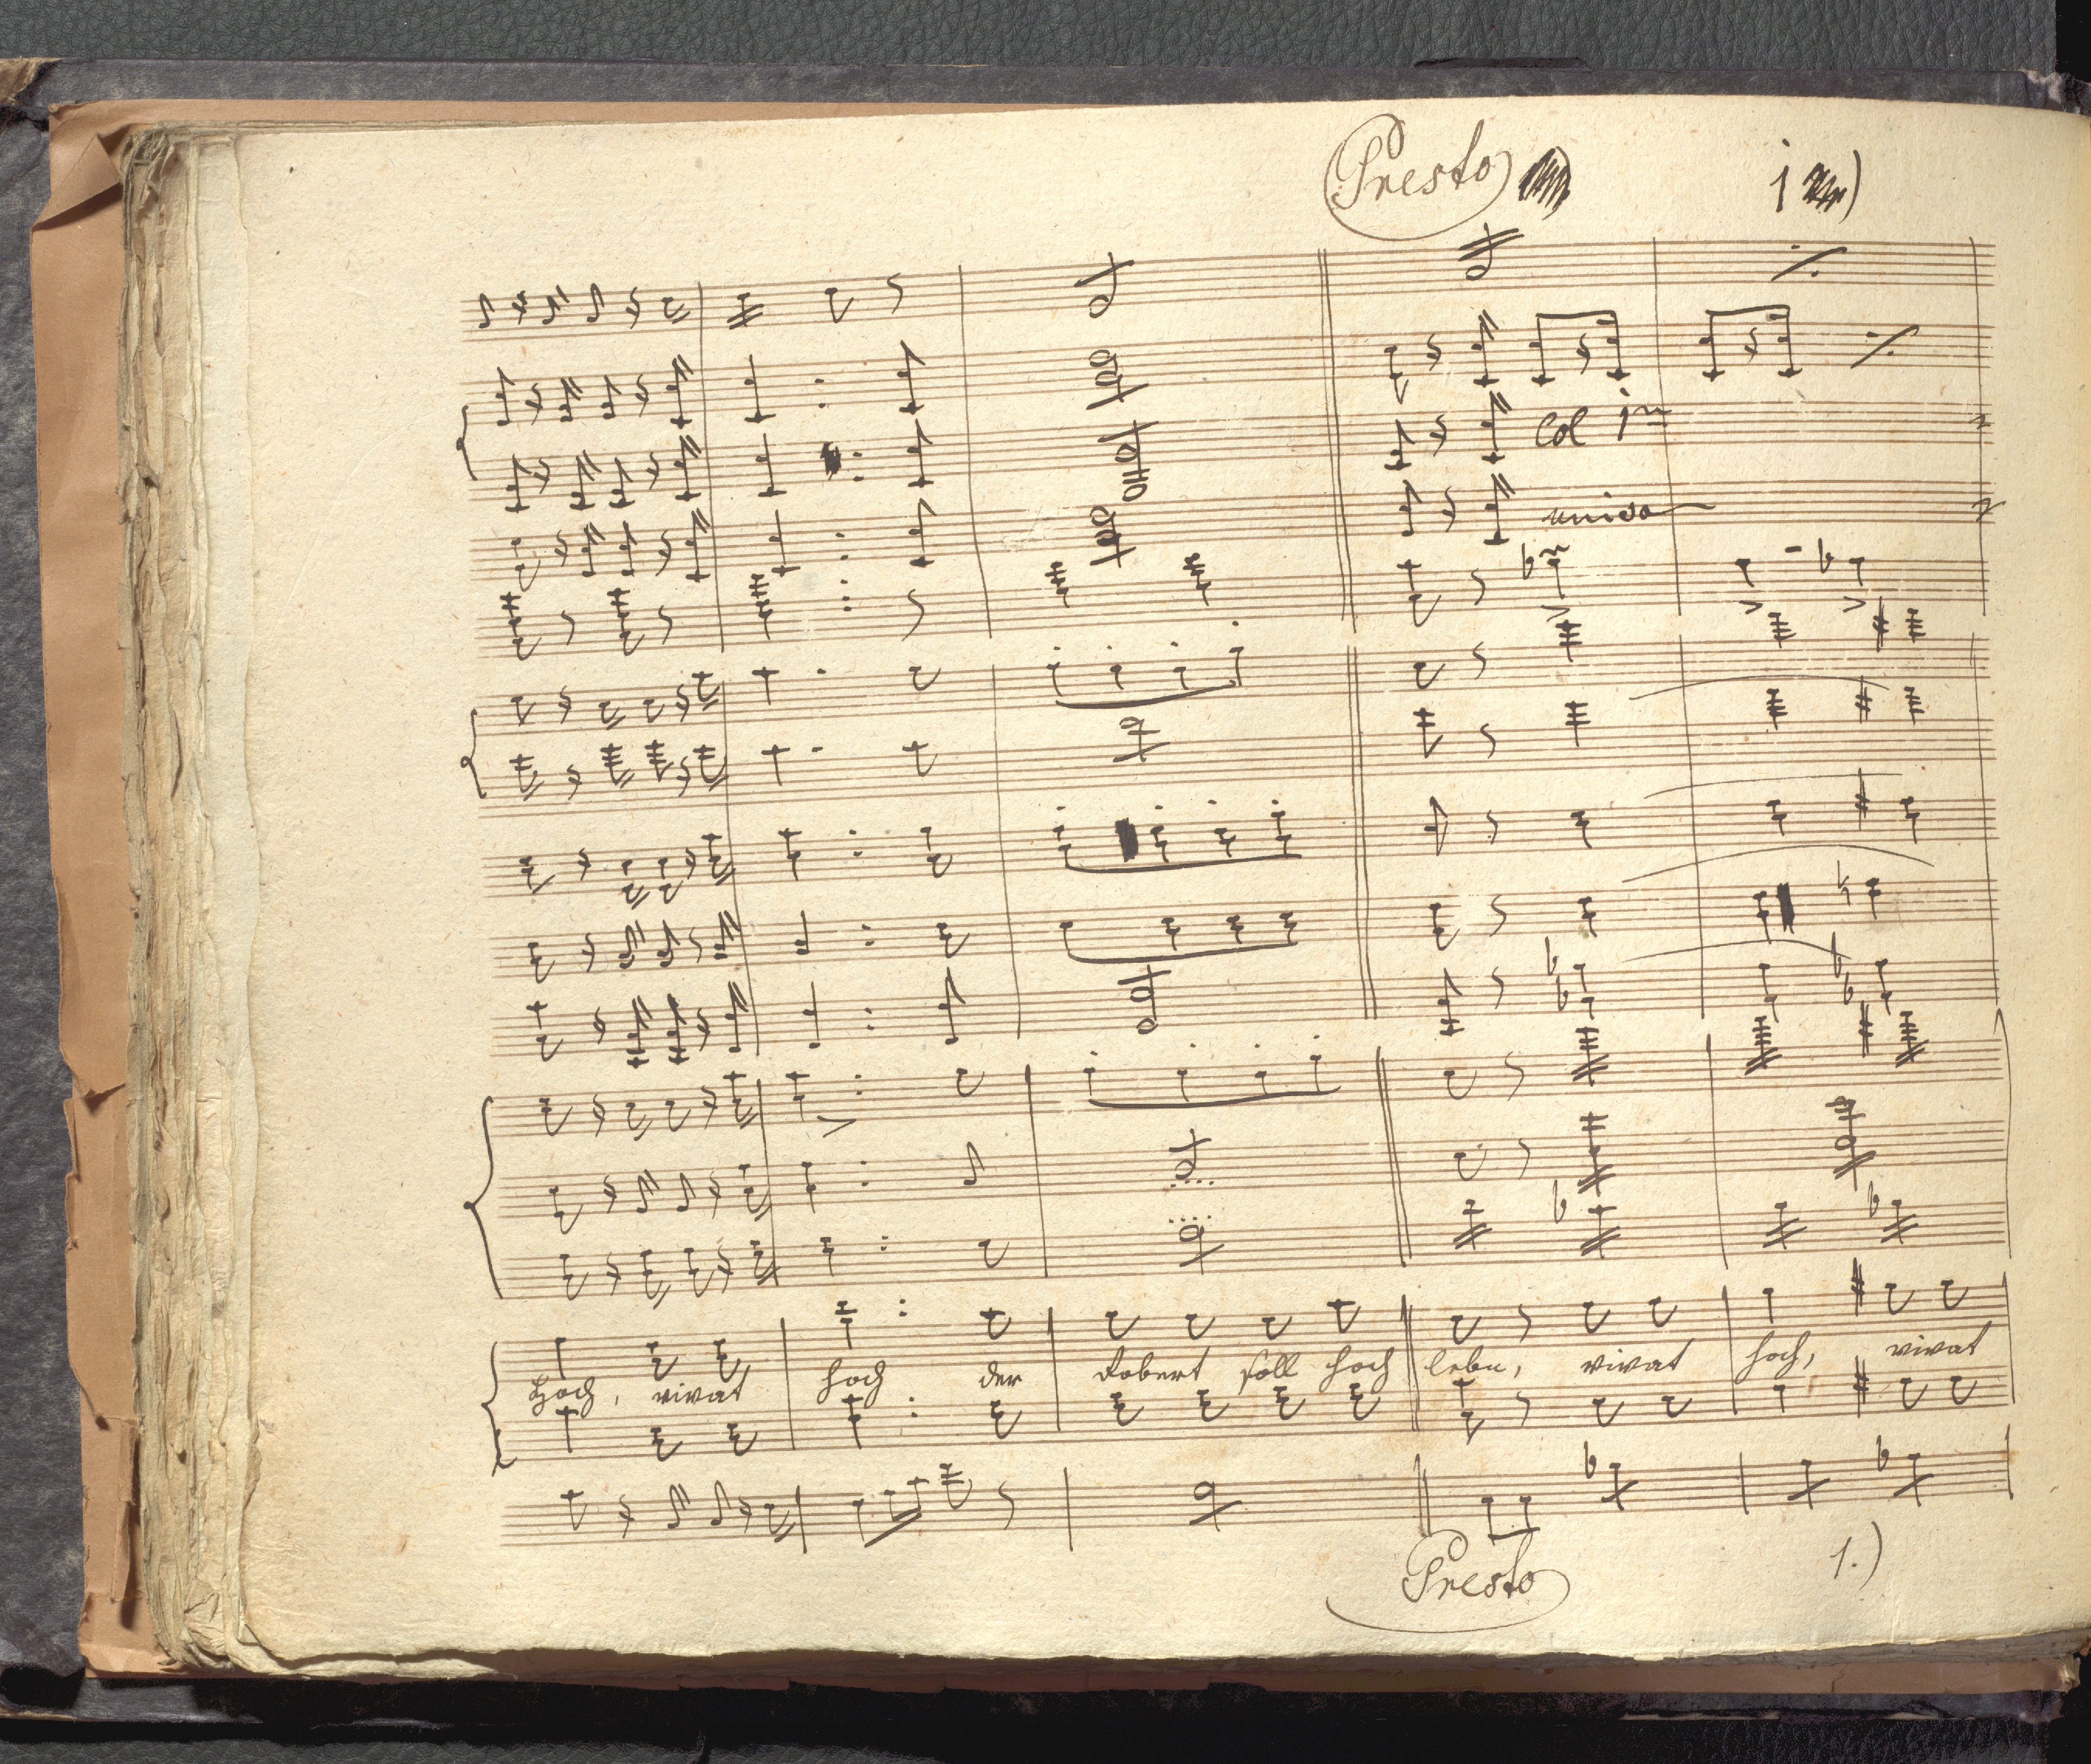 Presto
Col 1^m
unis:
Hoch, vivat hoch der Robert soll hoch leben, vivat hoch, vivat
Presto 1.)